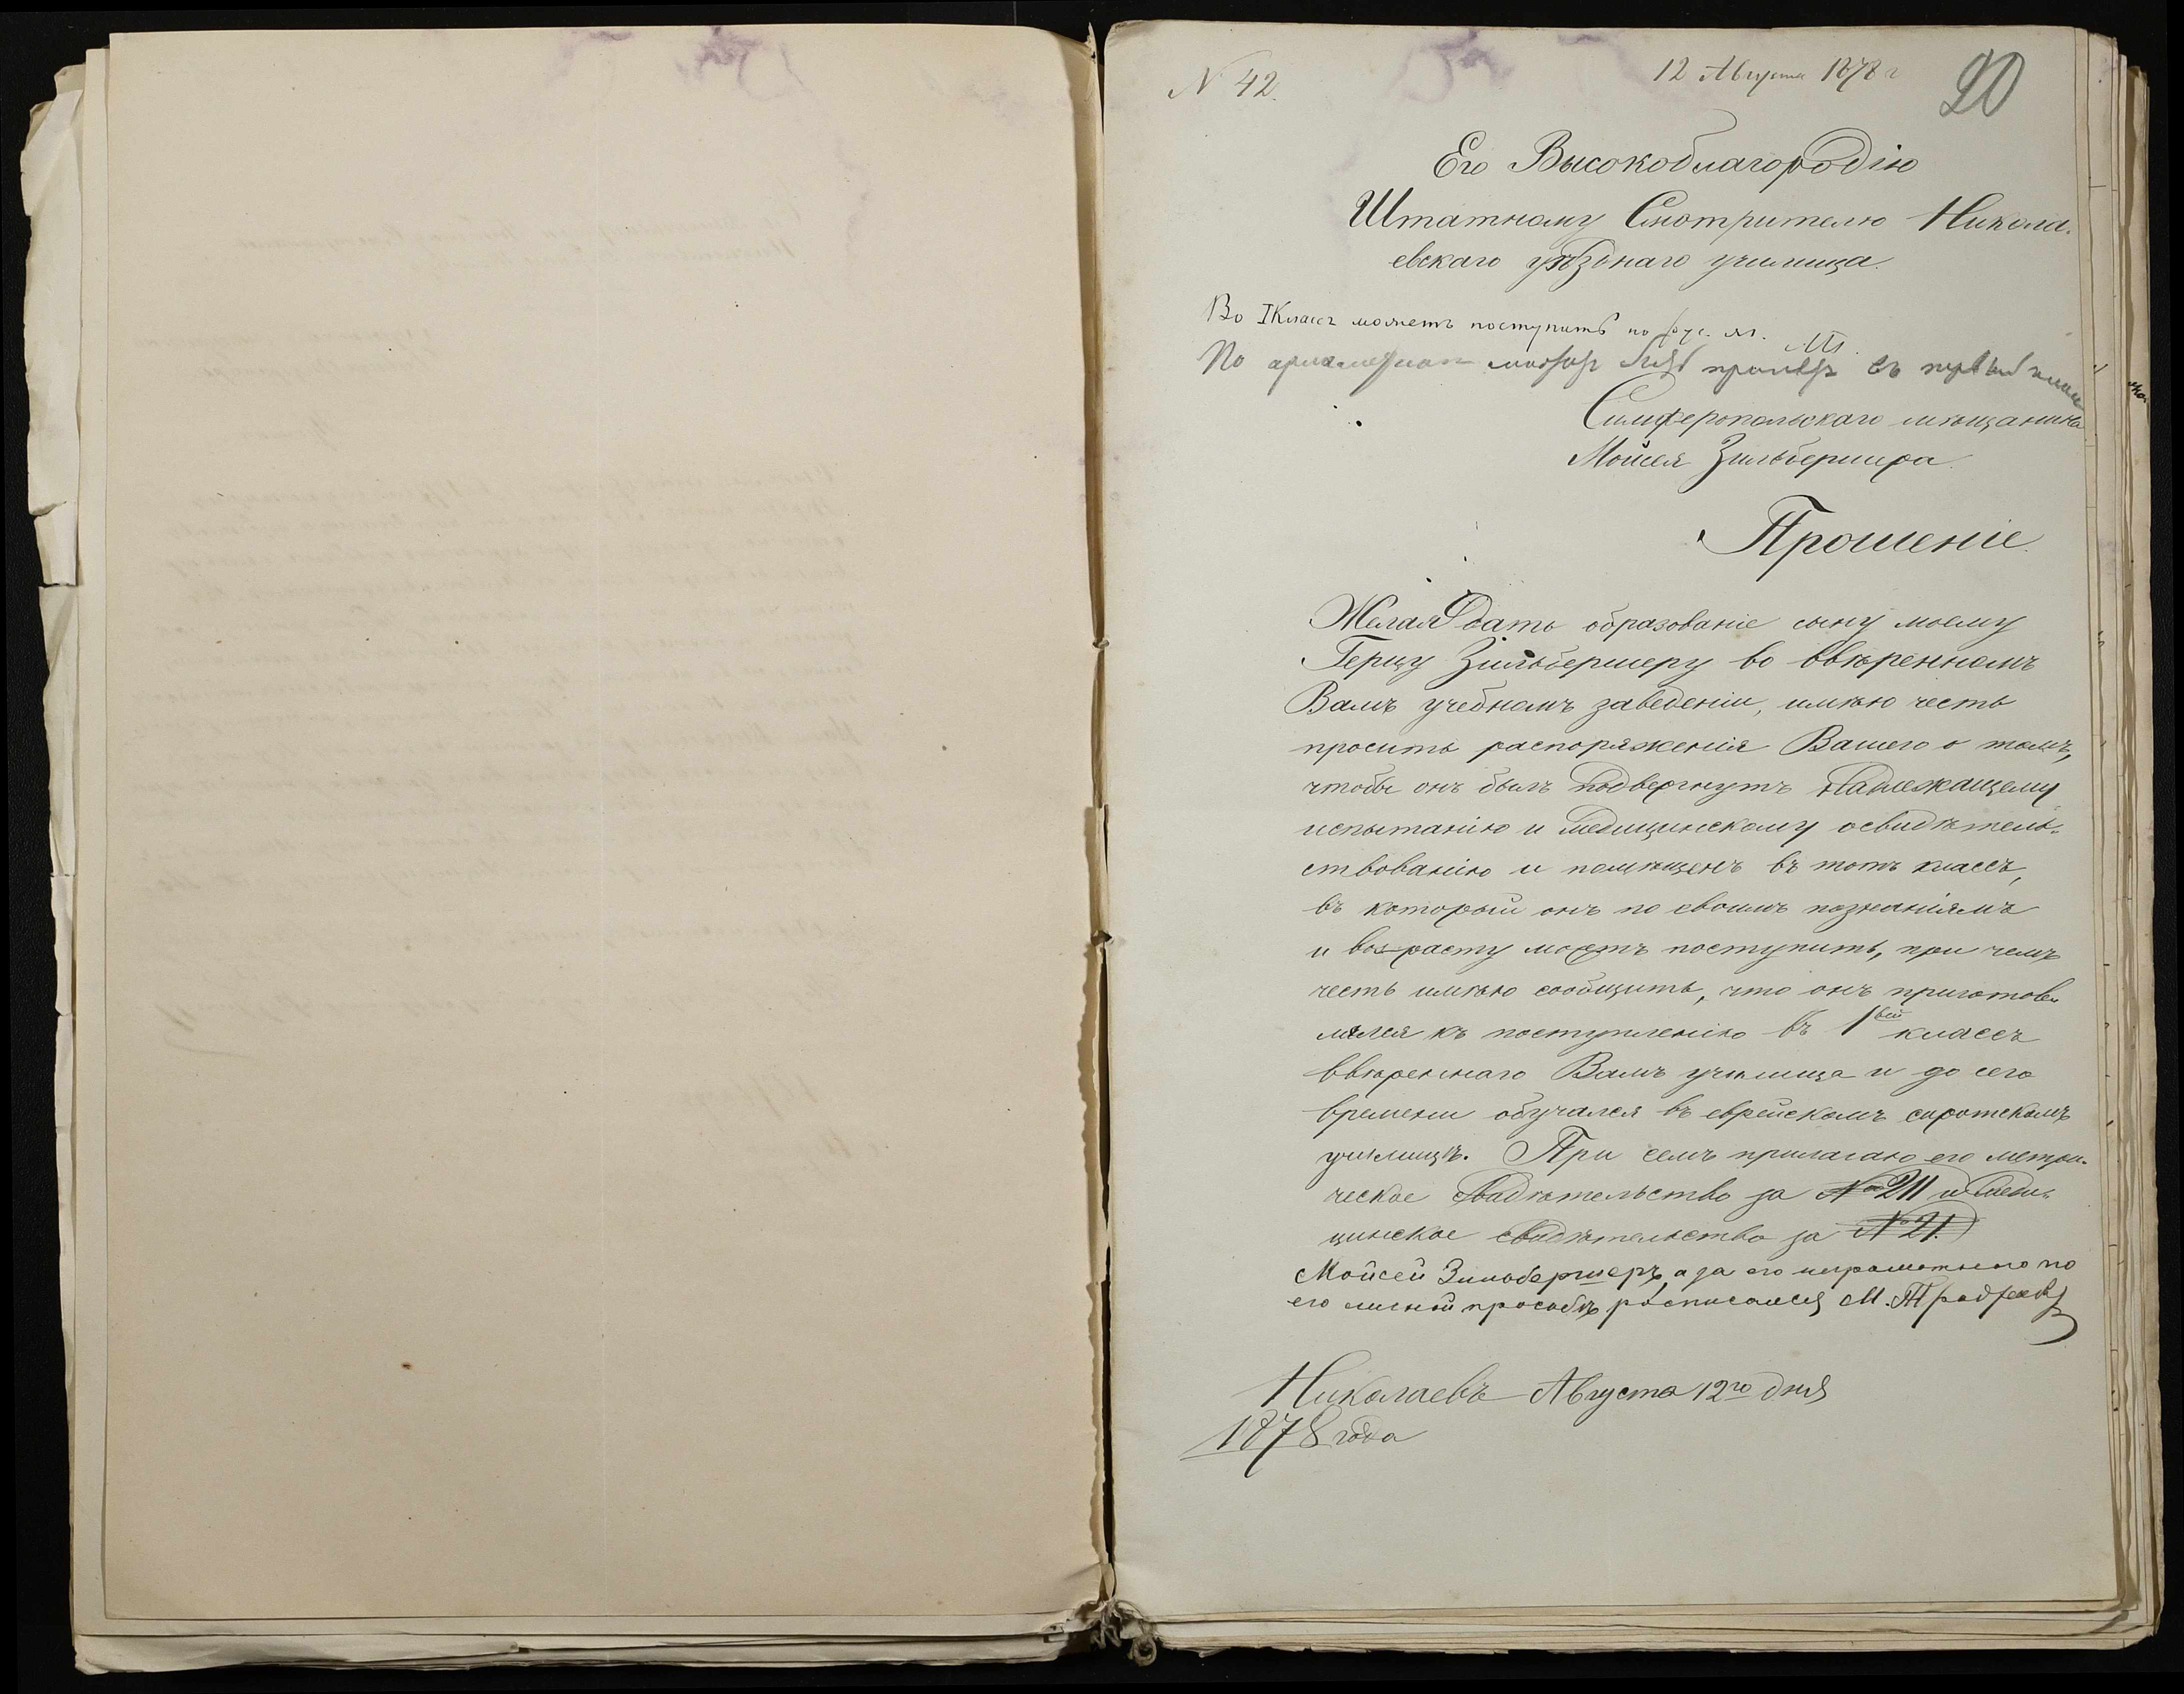 N 42.
12 Августа 1878 г
20
Его Высокоблагородію
Штатному Смотрителю Никола-
евскаго уѣзднаго училища.
Во I Классъ можетъ поступить по рус. яз.
По можетъ быть принятъ въ первый классъ
Симферопольскаго мѣщанина
Мойсея Зильбершера.
Прошеніе.
Желая дать образованіе сыну моему
Герцу Зильбершеру во ввѣренномъ
Вамъ учебномъ заведеніи, имѣю честь
просить распоряженія Вашего о томъ,
чтобы онъ былъ подвергнутъ надлежащему
испытанію и медицинскому освидѣтель-
ствованію и помѣщенъ въ тотъ классъ,
въ который онъ по своимъ познаніямъ
и возрасту можетъ поступить, при чемъ
честь имѣю сообщить, что онъ приготов-
лялся къ поступленію въ 1вый классъ
ввѣреннаго Вамъ училища и до сего
времени обучался въ еврейскомъ сиротскомъ
училищѣ. При семъ прилагаю его метри-
ческое свидѣтельство за № 211 и меди-
цинское свидѣтельство за № 21.
Мойсей Зильбершеръ, а за его неграмотного по
его личной просьбѣ росписался М.
Николаевъ Августа 12го дня
1878 года